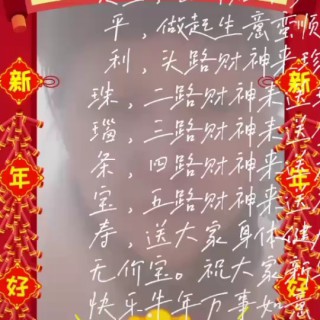 平，做起生意蛮顺
利，头路财神来珍
珠，二路财神来送
瑙，三路财神来送
条，四路财神来送
宝，五路财神来送
寿，送大家身体健
无价宝。祝大家新
快乐牛年万事如意
新年好
新年好